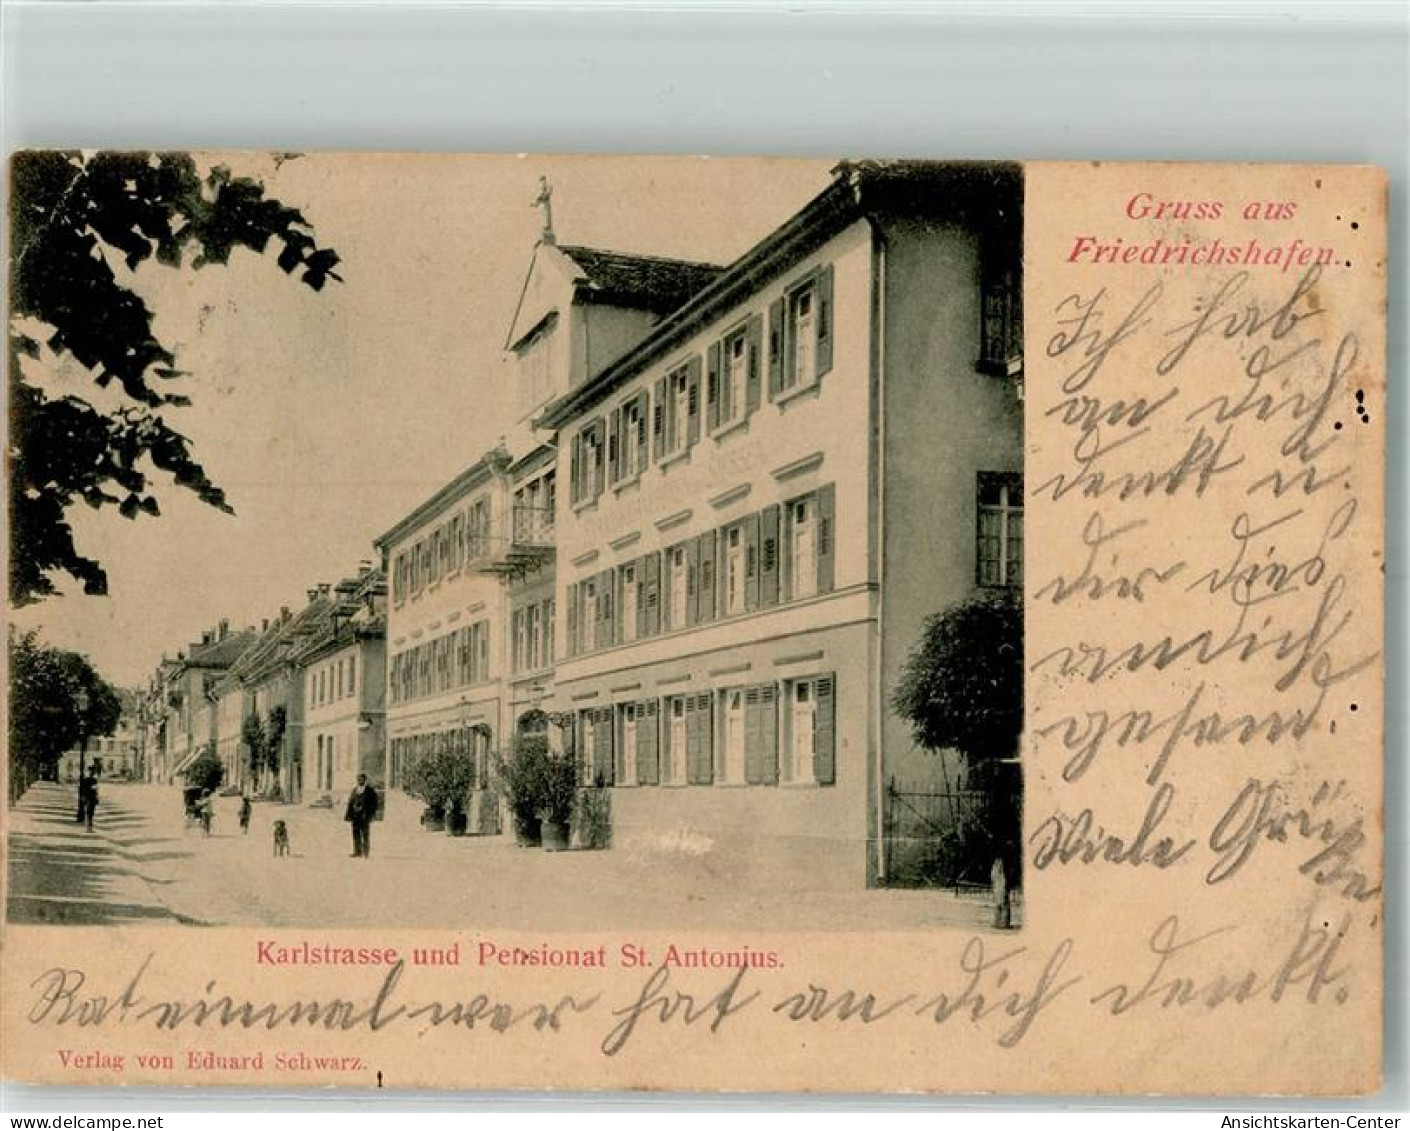 Gruss aus
Friedrichshafen.
Ich hab
an dich
denkt u.
dir dies
an dich
gesend.
Viele Grüße
Karlstrasse und Pensionat St. Antonius.
Rat einmal wer hat an dich denkt.
Verlag von Eduard Schwarz.
Ansichtskarten-Center